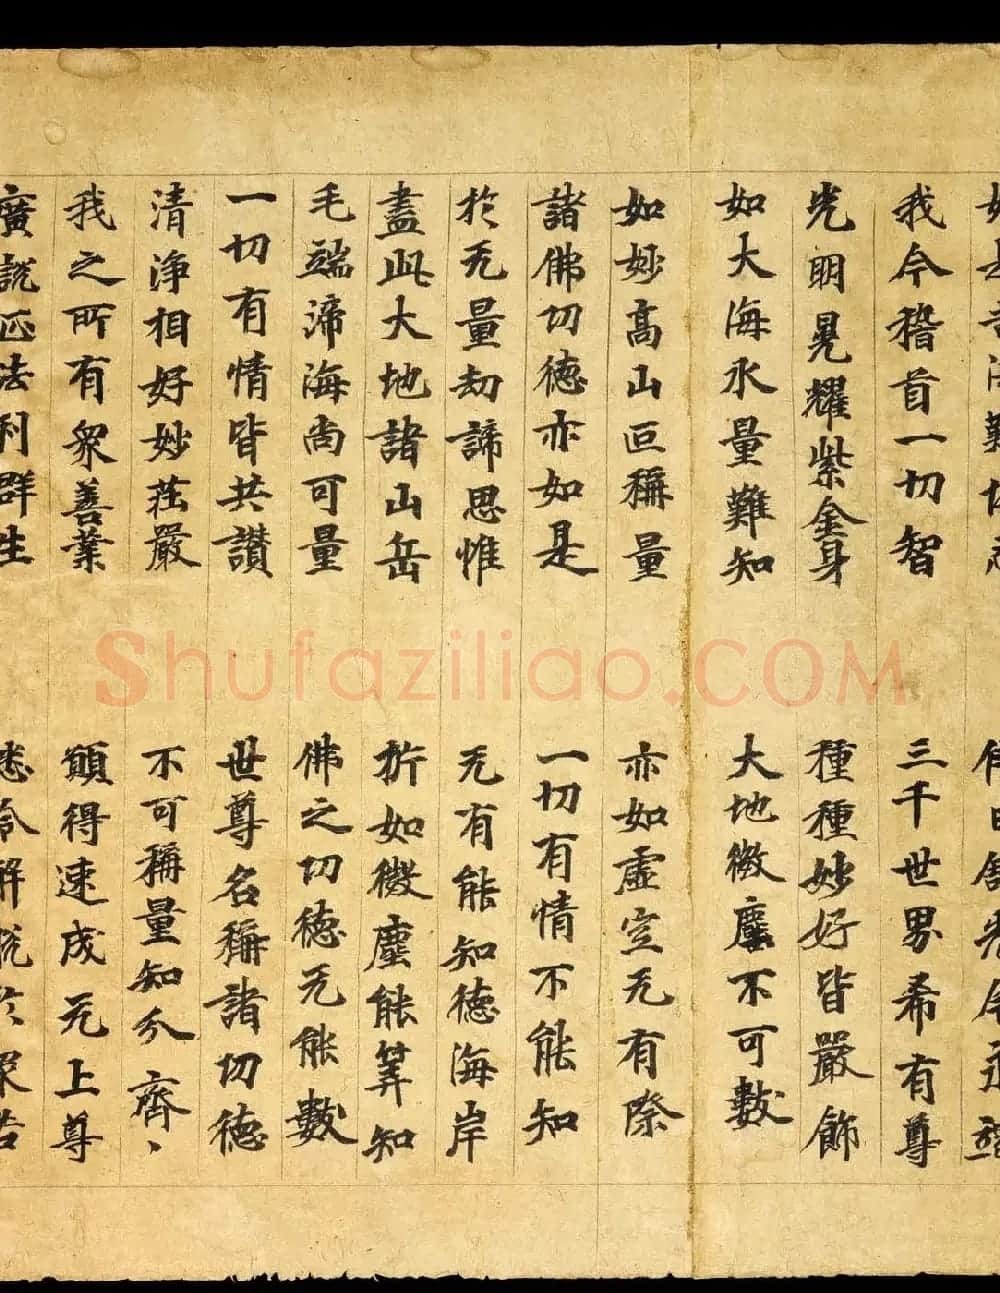 我今稽首一切智 三千世界希有尊
光明晃耀紫金身 種種妙好皆嚴飾
如大海水量難知 大地微塵不可數
如妙高山叵稱量 亦如虛空无有際
諸佛功德亦如是 一切有情不能知
於无量劫諦思惟 无有能知德海岸
盡此大地諸山岳 析如微塵能筭知
毛端渧海尚可量 佛之功德无能數
一切有情皆共讚 世尊名稱諸功德
清淨相好妙莊嚴 不可稱量知分齊、
我之所有眾善業 願得速成无上尊
廣說正法利群生 悉令解脫於眾苦
Shufaziliao.COM